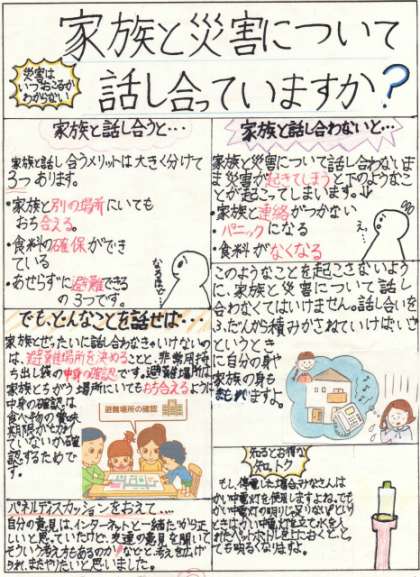 家族と災害について
話し合っていますか？
災害は
いつおこるか
わからない
家族と話し合うと・・・
家族と話し合うメリットは大きく分けて
3つあります。
・家族と別の場所にいても
おち合える。
・食料の確保ができ
ている
・あせらずに避難できる
の3つです。
なるほど〜
家族と話し合わないと・・・
家族と災害について話し合わないま
ま災害が起きてしまうと下のようなこ
とが起こってしまいます。↓
・家族と連絡がつかない
・パニックになる
・食料がなくなる
え、
このようなことを起こさないよう
に、家族と災害について話し合
わなくてはいけません。話し合いを
ふだんから積みかさねていけばいざ
というとき
に自分の身や
家族の身も
守れますよ。
でも、どんなことを話せば・・・
家族とぜったいに話し合わなきゃいけないの
は、避難場所を決めることと、非常用持
ち出し袋の中身の確認です。避難場所は
家族とちがう場所にいてもおち合えるように
中身の確認は
食べ物の賞味
期限がせかれ
ていないか確
認するためで
す。
避難場所の確認
知るとお得な
知トク
もし、停電した場合みなさんは
かい中電灯を使用しますよね。でも
かい中電灯の明りじゃ足りない!というと
きはかい中電灯を立て水を入
れたペットボトルを上におくと、とっ
ても明るくなりますよ。
パネルディスカッションをおえて・・・・
自分の意見は、インターネットと一緒だから正し
いと思っていたけど、友達の意見を聞いて
そういう考えもあるのかなどと、考えを広げ
られ、またやりたいと思いました。